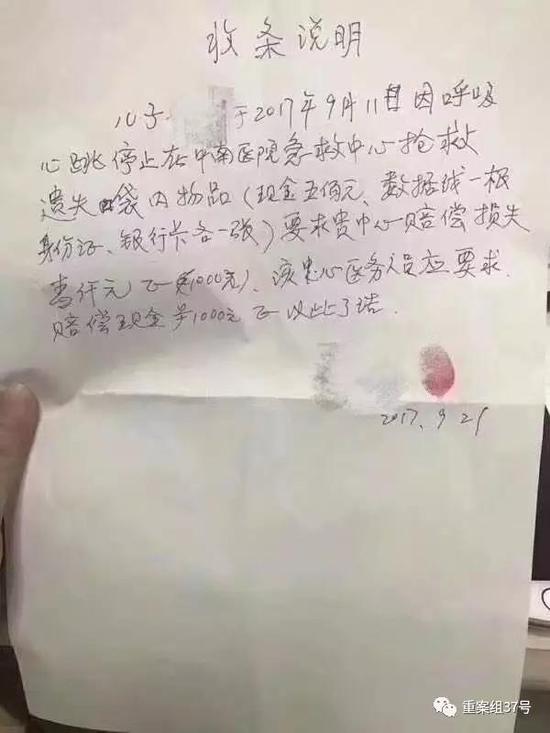 收条说明
儿子 于2017年9月11日因呼吸
心跳停止在中南医院急救中心抢救
遗失袋内物品(现金五佰元、数据线一根
身份证、银行卡各一张)要求贵中心赔偿损失
壹仟元正(¥1000元)、该中心医务人员应要求.
赔偿现金¥1000元正以此了结.
2017.9.21
重案组37号